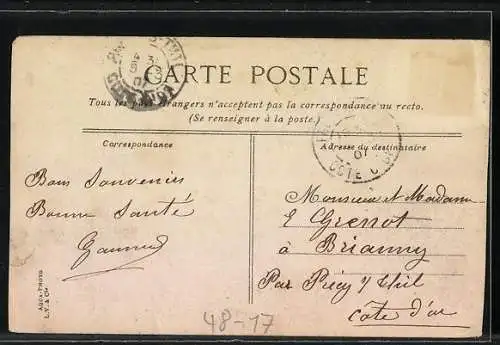 CARTE POSTALE
Tous les pays étrangers n'acceptent pas la correspondance au recto.
(Se renseigner à la poste.)
Correspondance
Adresse du destinataire
Bons Souvenirs
Bonne Santé
Monsieur et Madame
E Grenot
à Brianny
Par Précy s/ Thil
Côte d'or
AQUA-PHOTO
L.V. & Cie
48-17
07
COTE D'OR